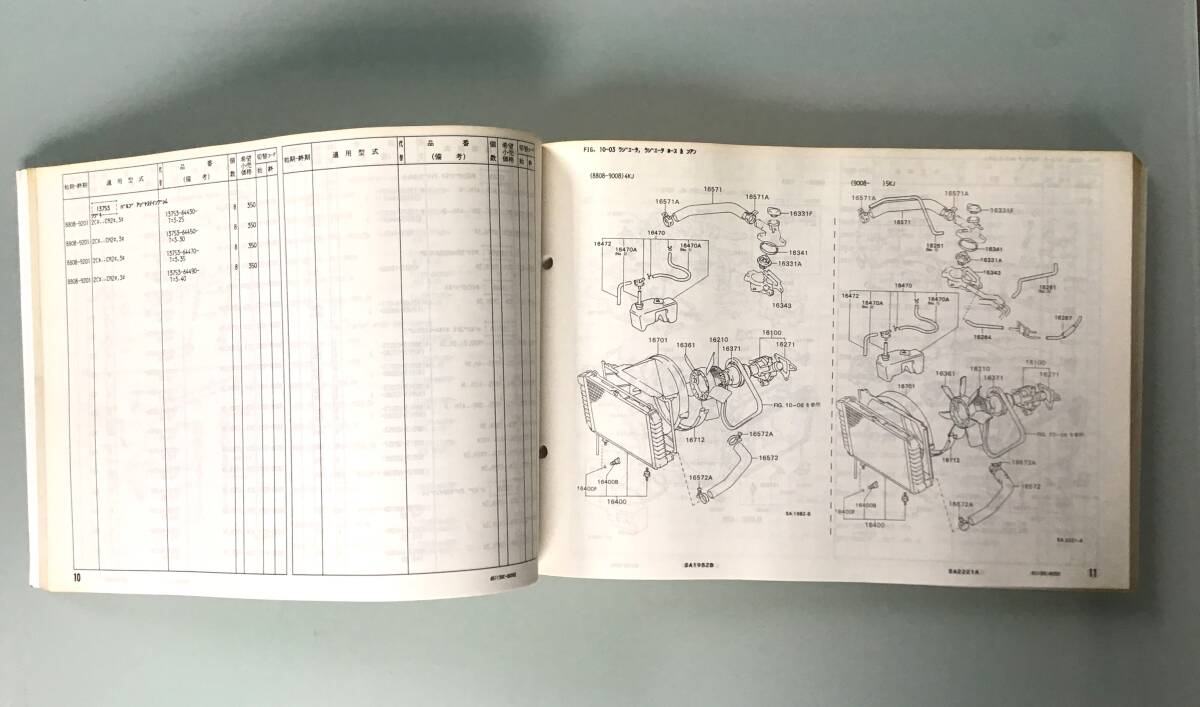 始期-終期 適用型式 代替 品番 (備考) 個数 希望小売価格 切替コード 始 終
始期-終期 適用型式 代替 品番 (備考) 個数 希望小売価格 切替コード 始 終
13753
8808-9201 2C#..CR2#,3# 13753-64430- 8 350
T=5.25
8808-9201 2C#..CR2#,3# 13753-64450- 8 350
T=5.30
8808-9201 2C#..CR2#,3# 13753-64470- 8 350
T=5.35
8808-9201 2C#..CR2#,3# 13753-64490- 8 350
T=5.40
10
FIG. 10-03 ラジエータ, ラジエータ ホース & フアン
(8808-9008)4KJ
16571
16571A
16571A
16331F
16470
16472
16470A
16470A
16341
16331A
16343
16701
16361
16210
16371
16100
16271
FIG. 10-06 を参照
16712
16572A
16572
16572A
16400F
16400B
16400
SA1982-B
SA1982B
(9008- )5KJ
16571A
16571A
16571
16331F
16261
16341
16331A
16343
16470
16472
16470A
16470A
16261
16264
16267
16701
16361
16210
16371
16100
16271
FIG. 10-06 を参照
16712
16572A
16572
16572A
16400F
16400B
16400
SA2221-A
SA2221A
11